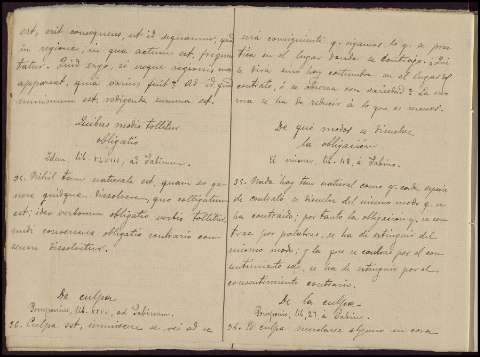 est, erit consequens, ut id sequamur, quod
in regione, in qua actum est, frequen
tatur. Quid ergo, si neque regionis mos
appareat, quia varius fuit? Ad id quod
minimum est, redigenda summa est.
Quibus modis tollitur
obligatio
Idem, lib. XLVIII, ad Sabinum.
35. Nihil tam naturale est, quam eo ge
nere quidque dissolvere, quo colligatum
est; ideo verborum obligatio verbis tollitur
nudi consensus obligatio contrario con
sensu dissolvitur.
De culpa
Pomponius, lib. XXVII, ad Sabinum.
36. Culpa est, immiscere se rei ad se
será consiguiente q. sigamos lo q. se prac
tica en el lugar donde se contrajo. ¿Qué
se dirá si no hay costumbre en el lugar del
contrato, ó se observa con variedad? La su
ma se ha de reducir á lo que es menos.
De qué modos se disuelve
la obligación
El mismo, lib. 48, á Sabino.
35. Nada hay tan natural como q. cada especie
de contrato se disuelva del mismo modo q. se
ha contraido; por tanto la obligacion q. se con
trae por palabras, se ha de extinguir del
mismo modo; y la que se contrae por el con
sentimiento solo, se ha de extinguir por el
consentimiento contrario.
De la culpa
Pomponio, lib. 27, á Sabino.
36. Es culpa mezclarse alguno en cosa